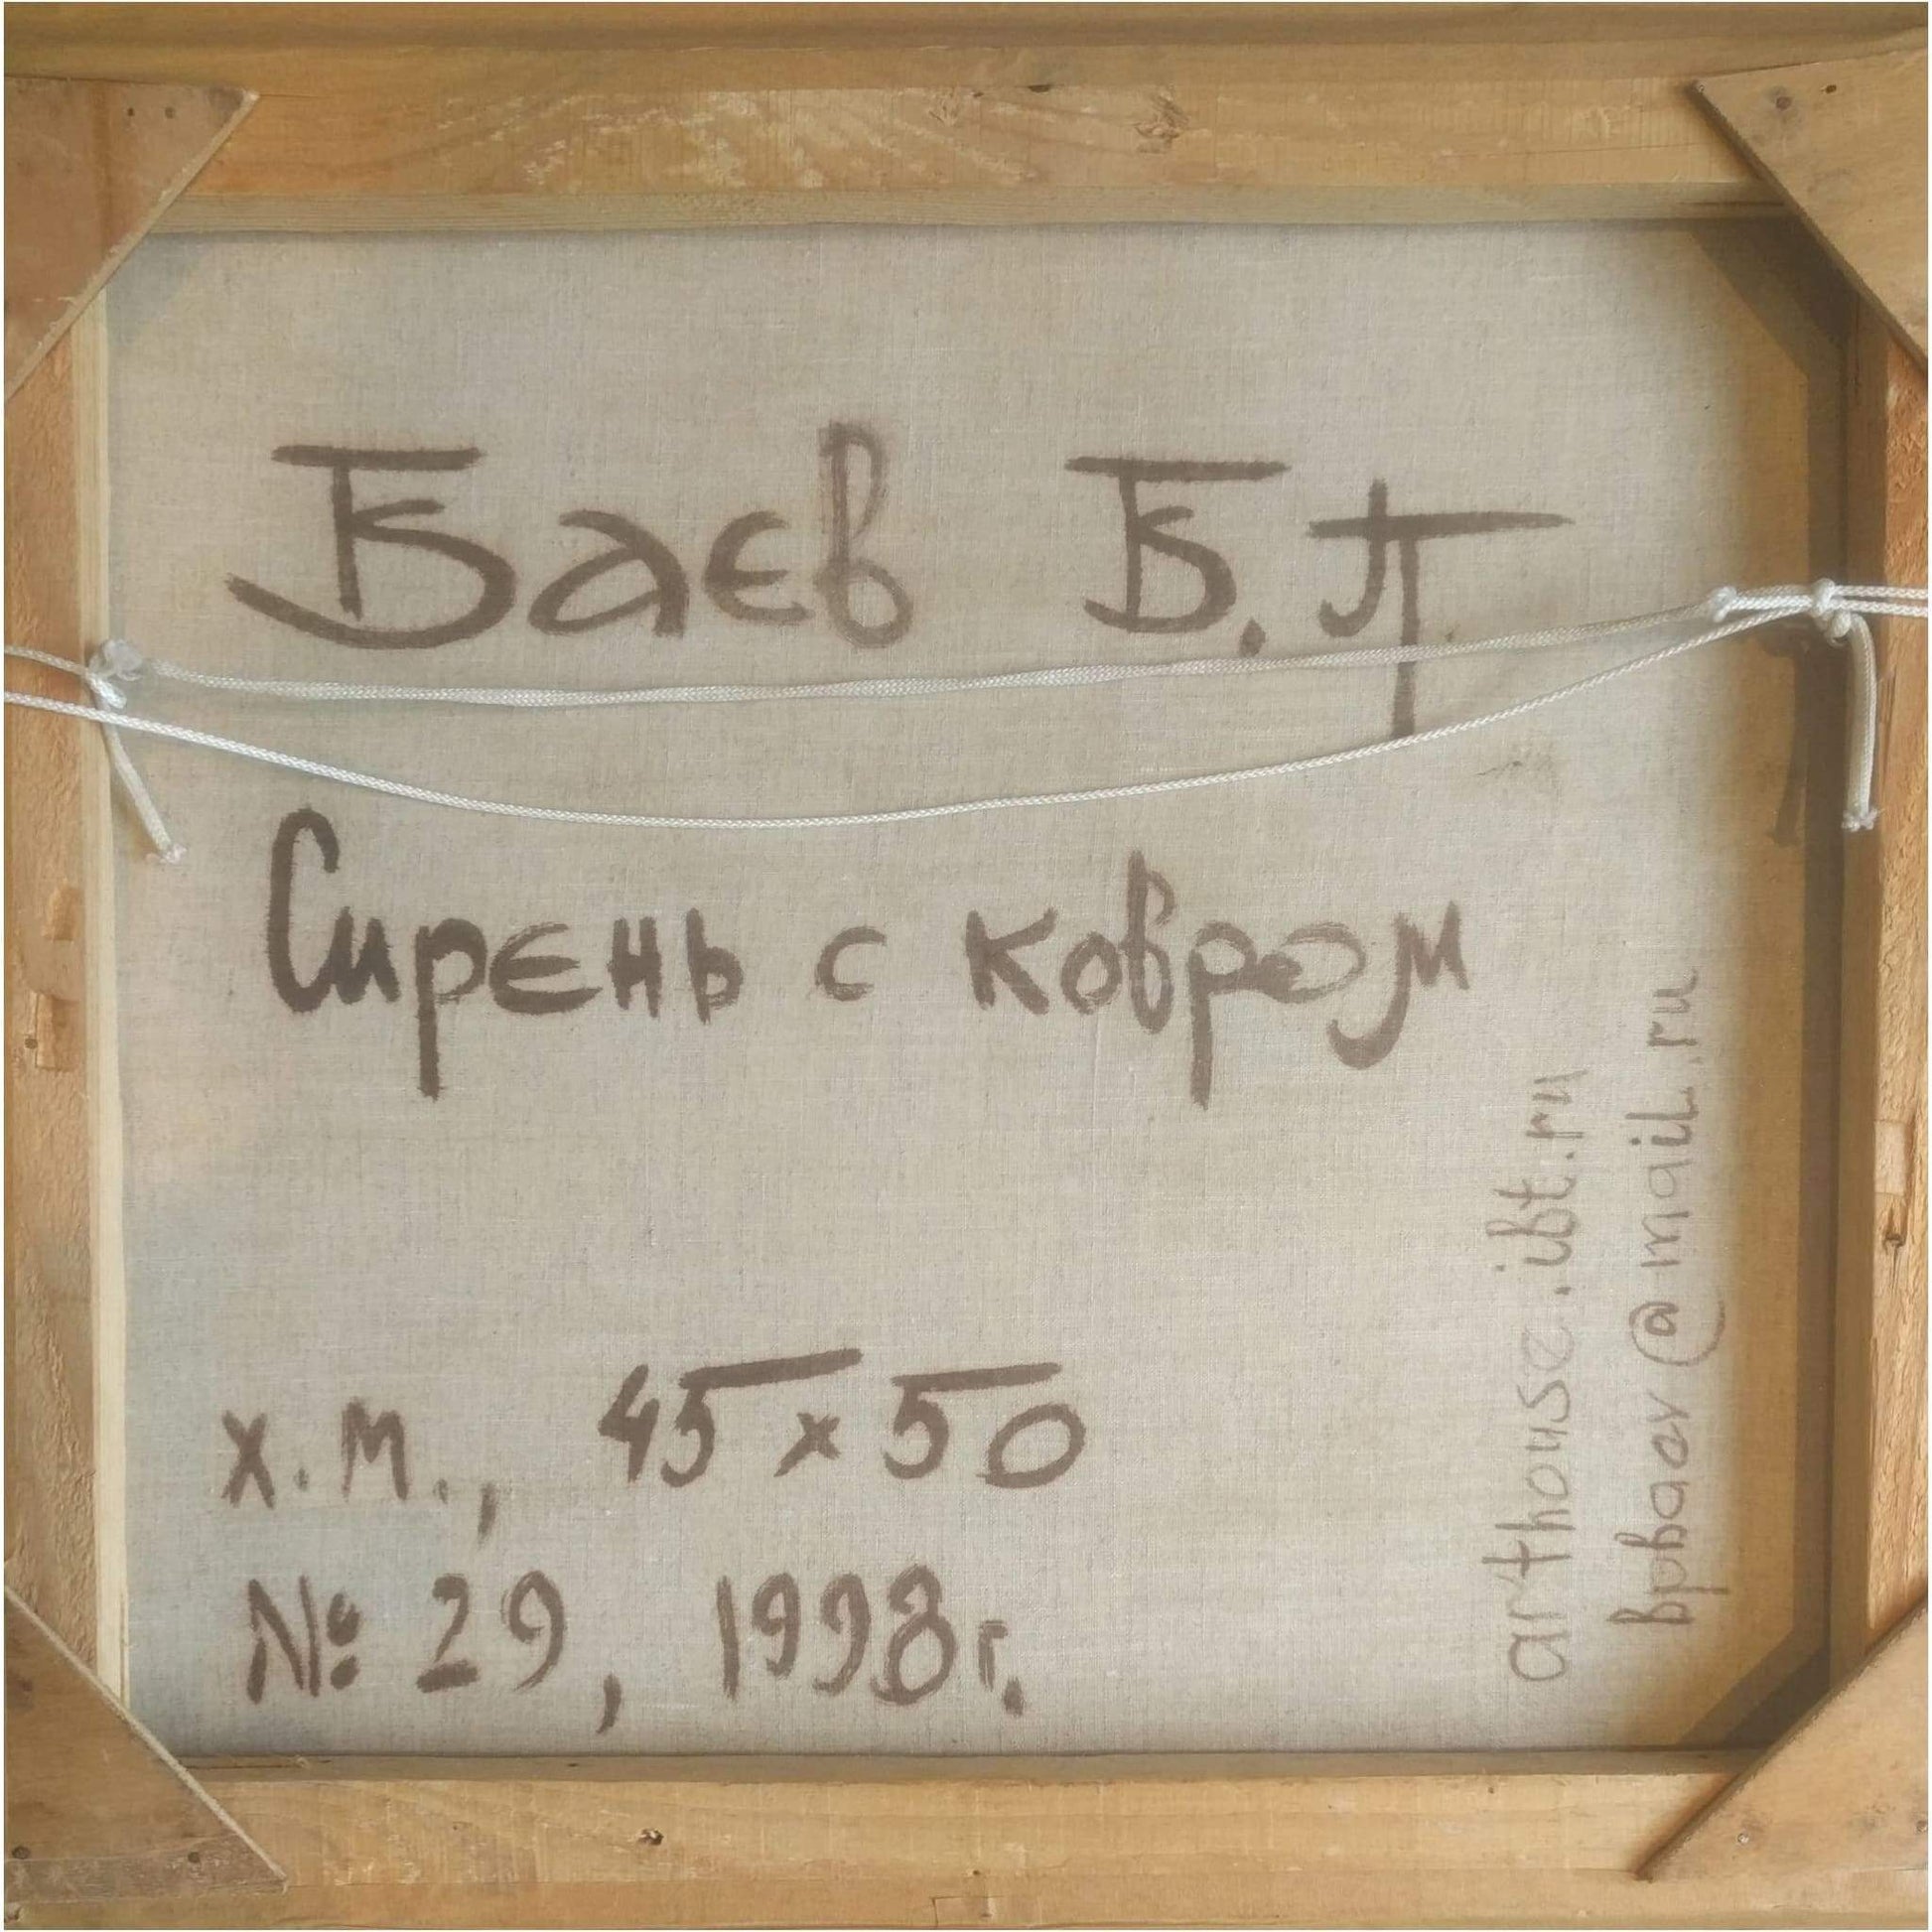 Баев Б.П
Сирень с ковром
х.м., 45 х 50
№ 29, 1998г.
arthouse.ibt.ru
bpbaev@mail.ru